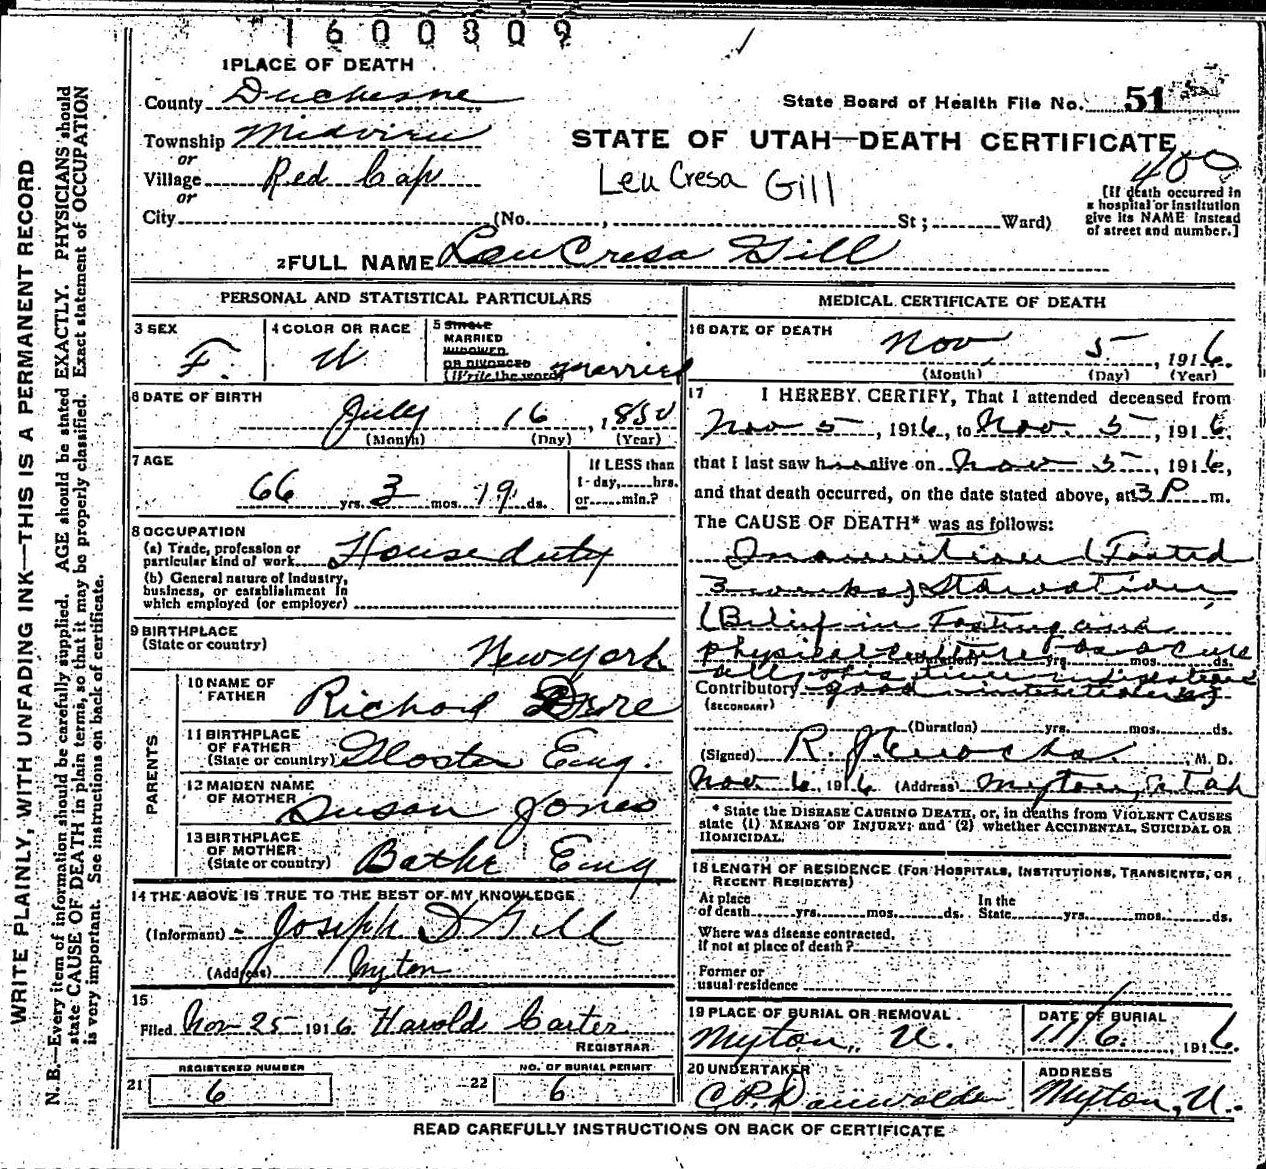 1600309
1 PLACE OF DEATH
County Duchesne
State Board of Health File No. 51
Township Midview
STATE OF UTAH—DEATH CERTIFICATE
or
Village Red Cap
Leu Cresa Gill
400
or
City (No. , St; Ward)
[If death occurred in
a hospital or institution
give its NAME instead
of street and number.]
2 FULL NAME Leu Cresa Gill
PERSONAL AND STATISTICAL PARTICULARS
3 SEX
F.
4 COLOR OR RACE
W
5 SINGLE
MARRIED
WIDOWED
OR DIVORCED
(Write the word) married
6 DATE OF BIRTH
July 16, 1850
(Month) (Day) (Year)
7 AGE
66 yrs. 3 mos. 19 ds.
If LESS than
1 - day, hrs.
or min.?
8 OCCUPATION
(a) Trade, profession or
particular kind of work House duty
(b) General nature of industry,
business, or establishment in
which employed (or employer)
9 BIRTHPLACE
(State or country)
New York
PARENTS
10 NAME OF
FATHER Richard
11 BIRTHPLACE
OF FATHER
(State or country) Gloster Eng.
12 MAIDEN NAME
OF MOTHER Susan Jones
13 BIRTHPLACE
OF MOTHER
(State or country) Bathe Eng
14 THE ABOVE IS TRUE TO THE BEST OF MY KNOWLEDGE
(Informant) Joseph D Gill
(Address) Myton
15
Filed Nov 25 1916 Harold Carter
REGISTRAR
21 REGISTERED NUMBER
6
22 NO. OF BURIAL PERMIT
6
MEDICAL CERTIFICATE OF DEATH
16 DATE OF DEATH
Nov 5, 1916
(Month) (Day) (Year)
17 I HEREBY CERTIFY, That I attended deceased from
Nov 5, 1916, to Nov. 5, 1916
that I last saw her alive on Nov 5, 1916,
and that death occurred, on the date stated above, at 3 P m.
The CAUSE OF DEATH* was as follows:
Inanition (Fasted
3 weeks) Starvation
(Belief in Fasting and
physical culture as a cure
(Duration) yrs. mos. ds.
all,
Contributory good intentions)
(SECONDARY)
(Duration) yrs. mos. ds.
(Signed) R. J. Enochs M. D.
Nov 6, 1916 (Address) Myton, Utah
* State the DISEASE CAUSING DEATH, or, in deaths from VIOLENT CAUSES
state (1) MEANS OF INJURY; and (2) whether ACCIDENTAL, SUICIDAL OR
HOMICIDAL.
18 LENGTH OF RESIDENCE (FOR HOSPITALS, INSTITUTIONS, TRANSIENTS, OR
RECENT RESIDENTS)
At place
of death yrs. mos. ds. In the
State yrs. mos. ds.
Where was disease contracted,
if not at place of death?
Former or
usual residence
19 PLACE OF BURIAL OR REMOVAL
Myton, U.
DATE OF BURIAL
11/6, 1916.
20 UNDERTAKER
C. P.
ADDRESS
Myton, U.
READ CAREFULLY INSTRUCTIONS ON BACK OF CERTIFICATE
WRITE PLAINLY, WITH UNFADING INK—THIS IS A PERMANENT RECORD
N. B.—Every item of information should be carefully supplied. AGE should be stated EXACTLY. PHYSICIANS should
state CAUSE OF DEATH in plain terms, so that it may be properly classified. Exact statement of OCCUPATION
is very important. See instructions on back of certificate.